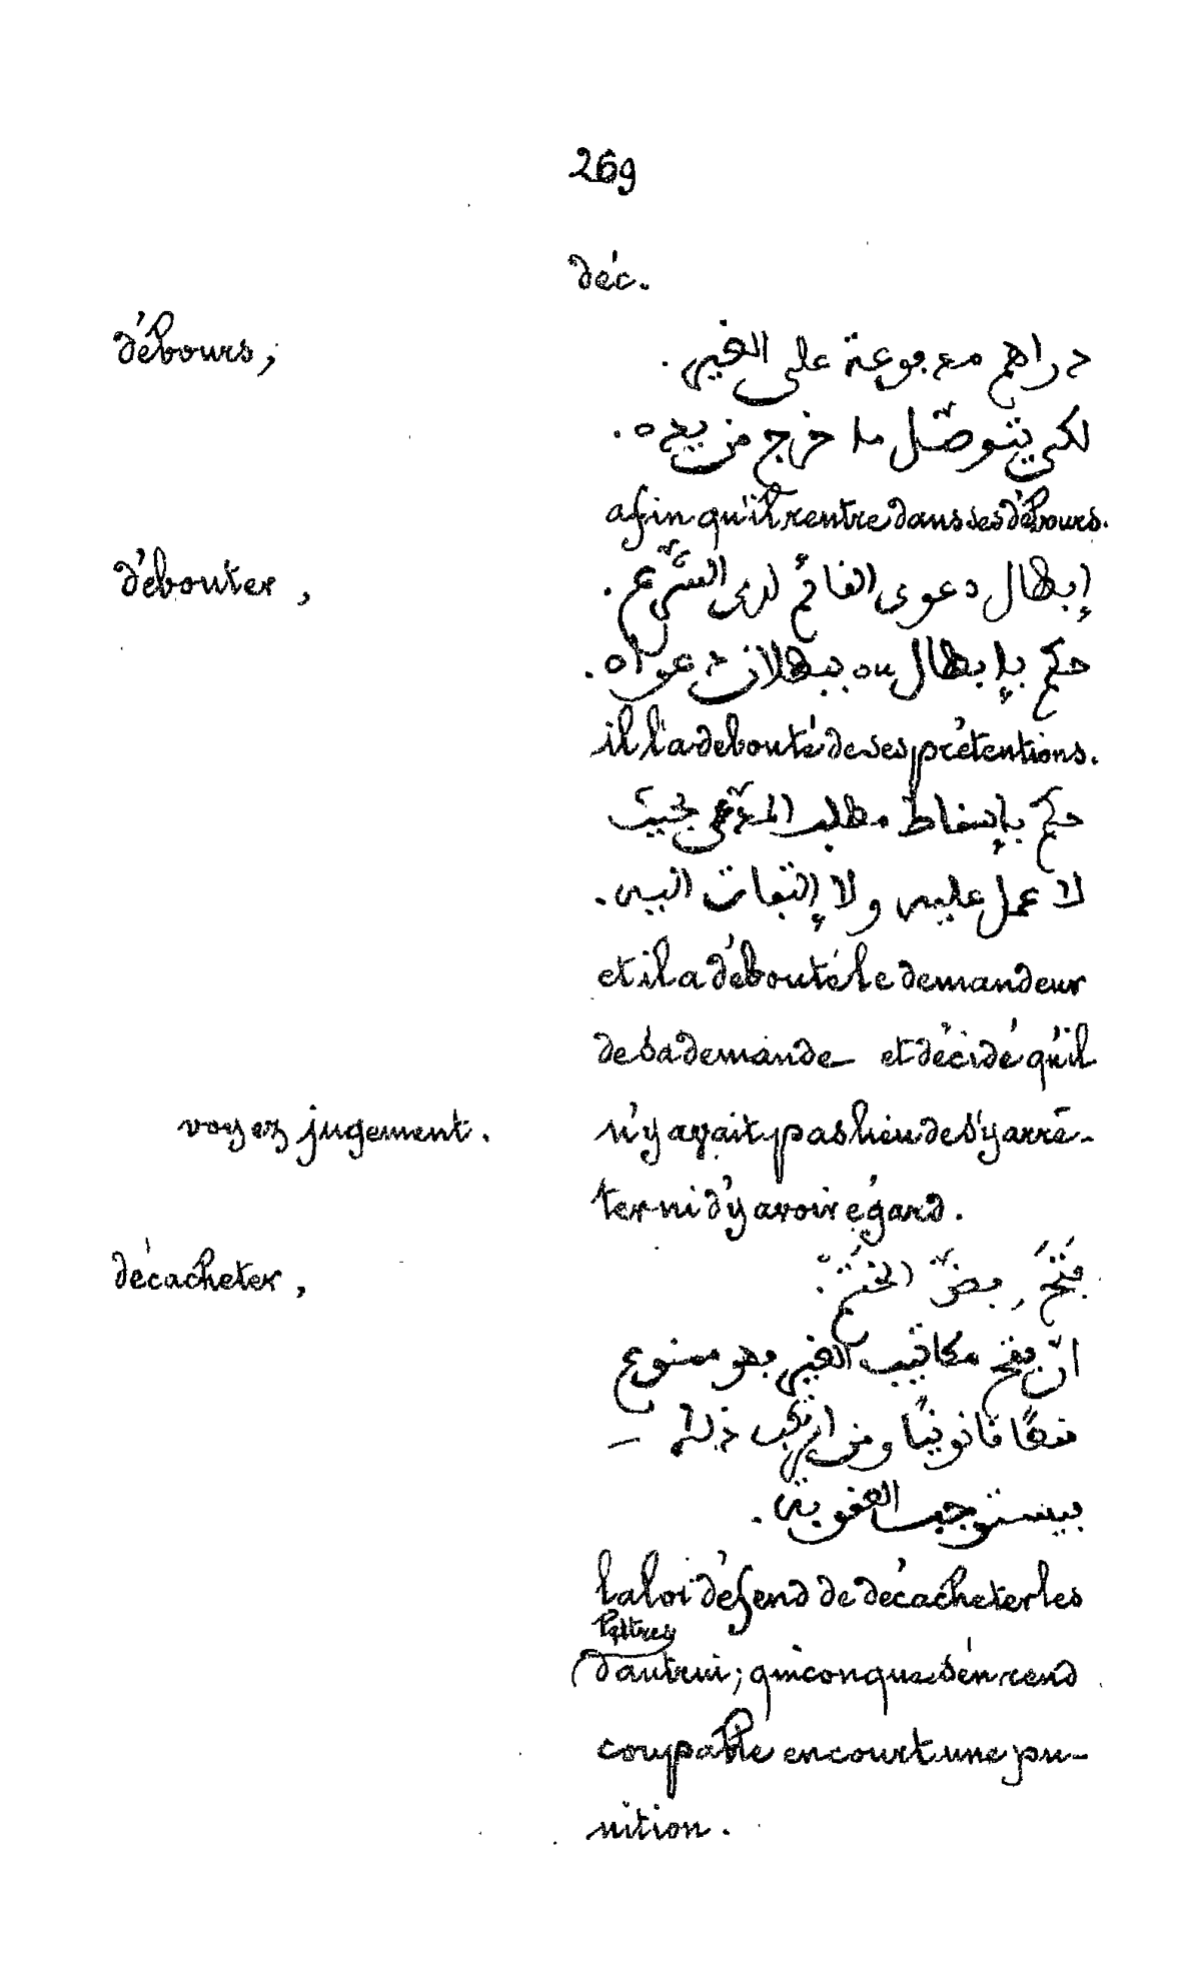 269
déc.
débours,
دراهم مدفوعة على الغير.
لكي يتوصّل ما خرج من يده.
afin qu'il rentre dans ses débours.
débouter,
إبطال دعوى القائم لدى الشّرع.
حكم بإبطال ou ببطلان دعواه.
il l'a débouté de ses prétentions.
حكم بإسقاط مطلب المدّعي بحيث
لا عمل عليه ولا إلتفات اليه.
et il a débouté le demandeur
de sa demande et décidé qu'il
voyez jugement.
n'y avait pas lieu de s'y arrê-
ter ni d'y avoir égard.
décacheter,
فَتَحَ, فضّ الختم.
انّ فتح مكاتيب الغير فهو ممنوع
منعًا قانونيًا ومن ارتكب ذلك
يستوجب العقوبة.
la loi défend de décacheter les
lettres
d'autrui; quiconque s'en rend
coupable encourt une pu-
nition.